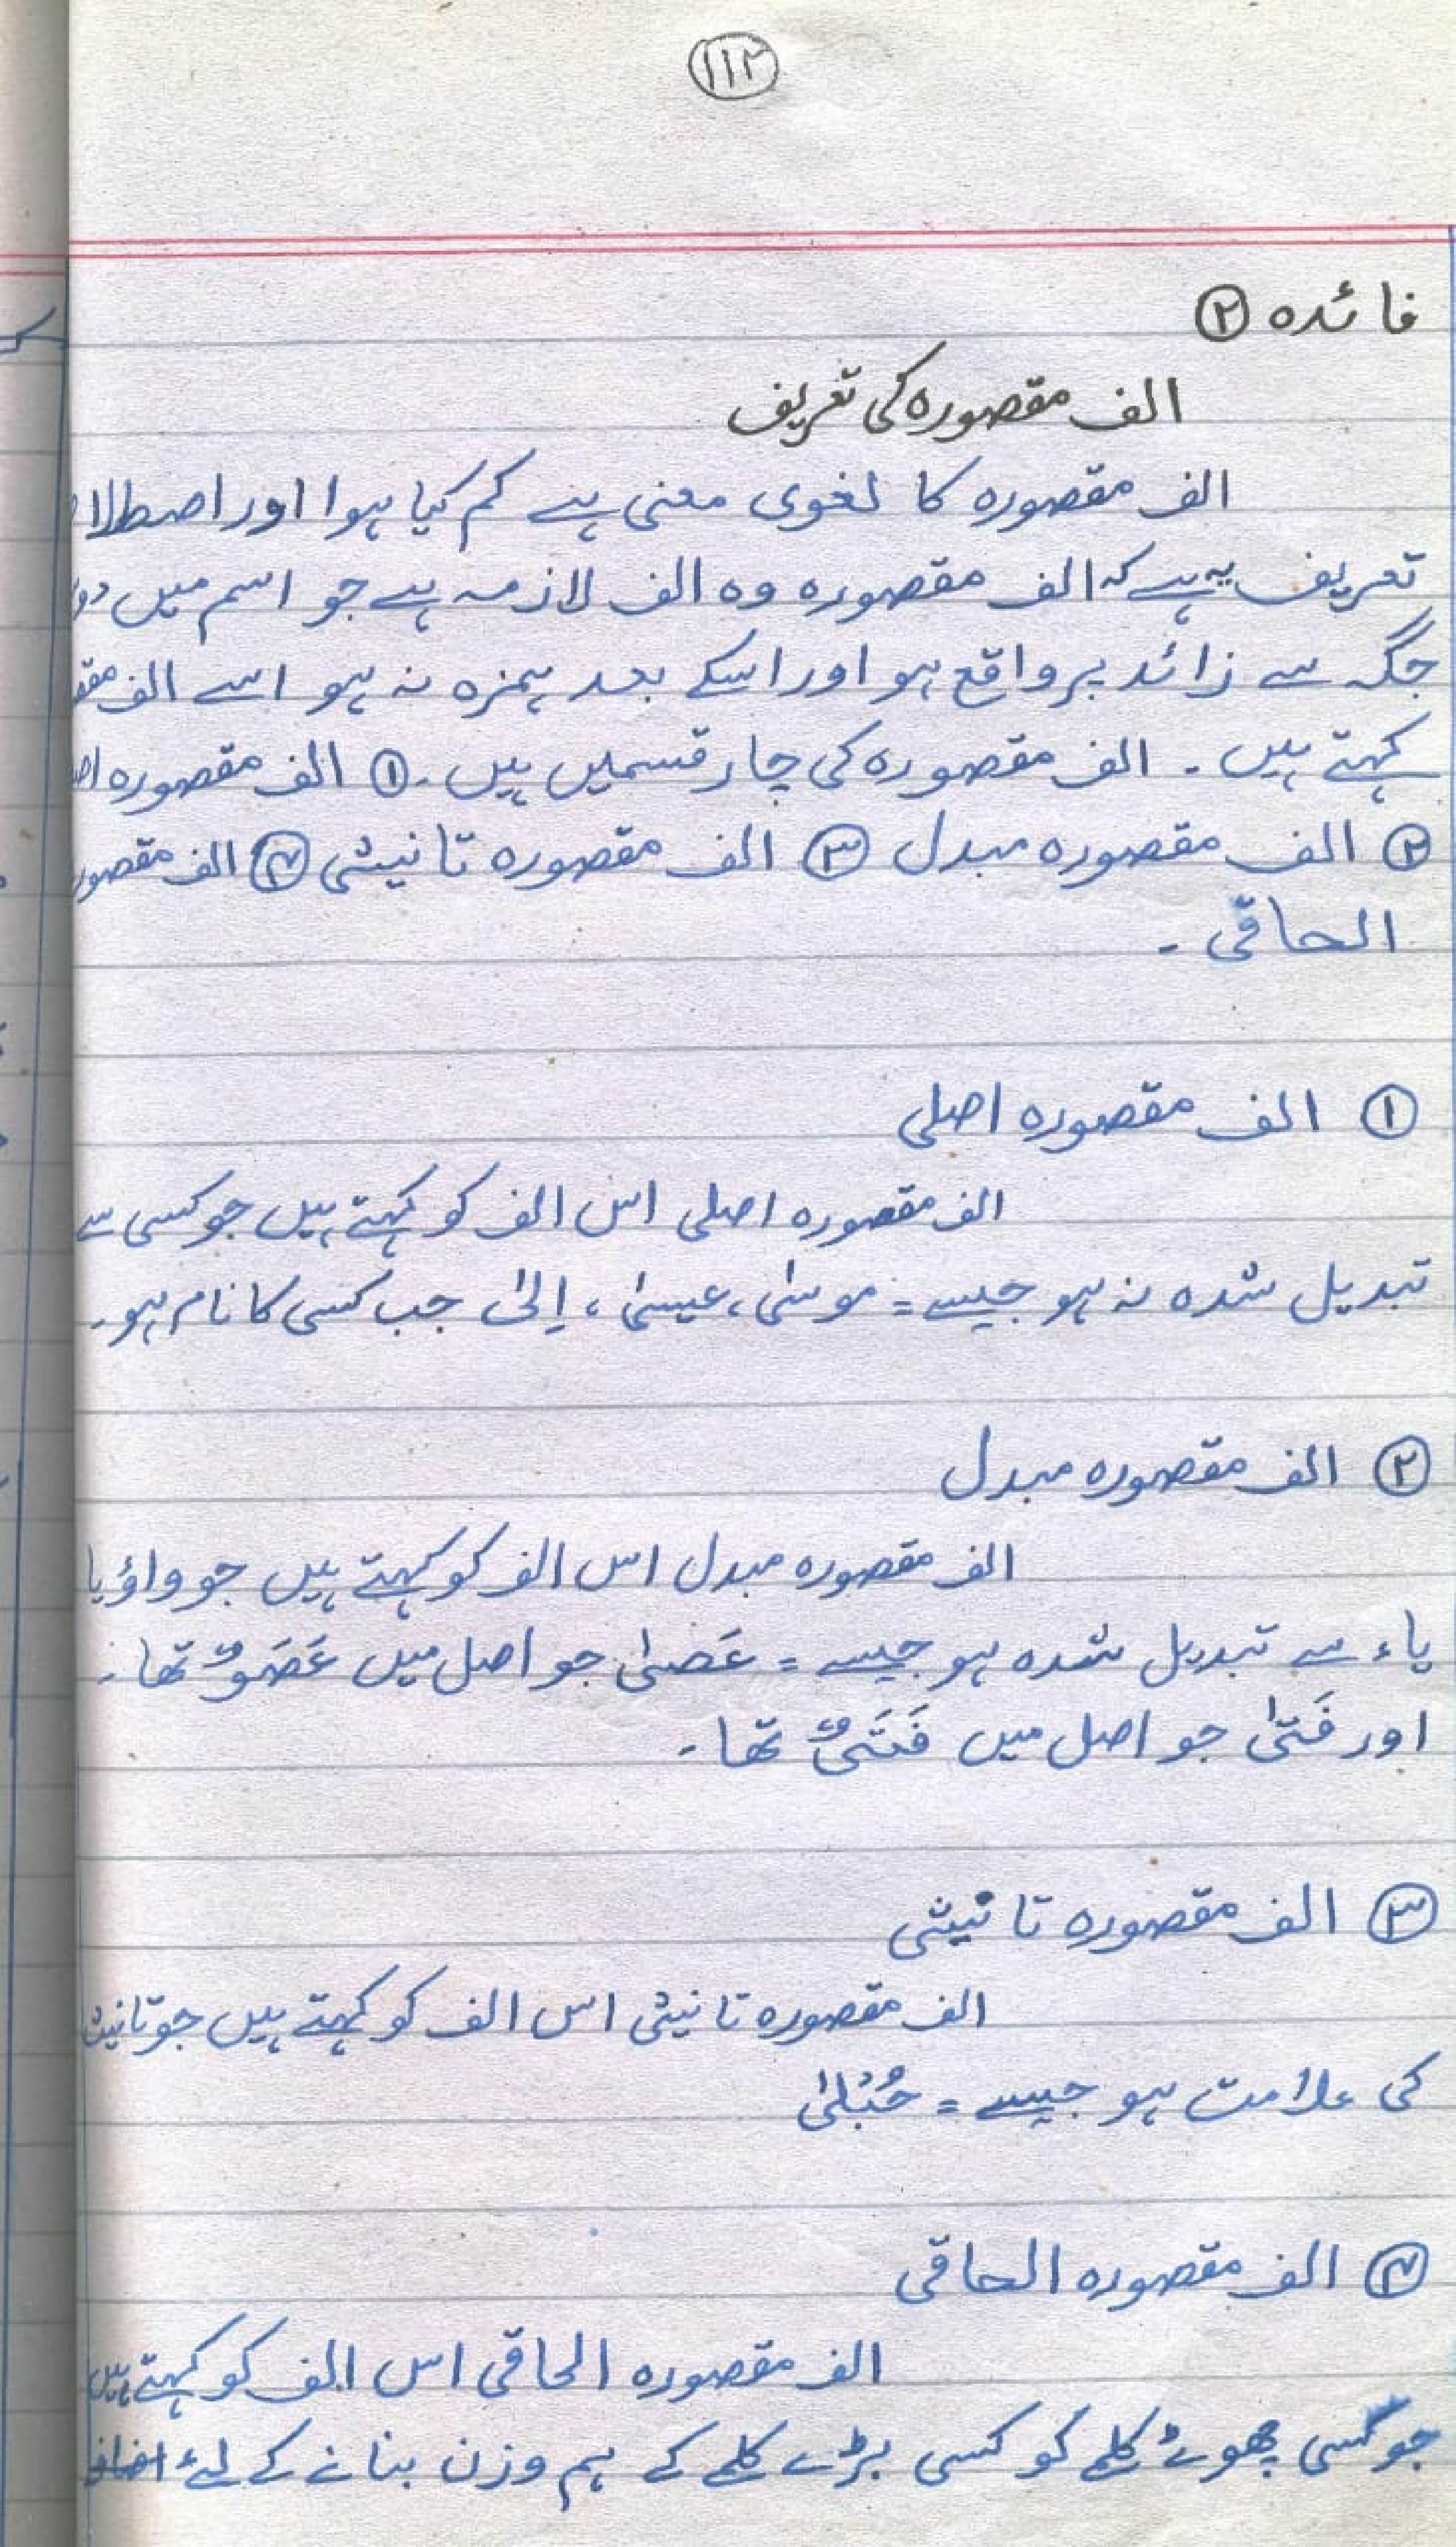 ۱۱۲
فائدہ ۲
الف مقصورہ کی تعریف
الف مقصورہ کا لغوی معنی ہے کم کیا ہوا اور اصطلاا
تعریف یہ ہے کہ الف مقصورہ وہ الف لازمہ ہے جو اسم میں دو
جگہ سے زائد پر واقع ہو اور اسکے بعد ہمزہ نہ ہو اسے الف مقو
کہتے ہیں ۔ الف مقصورہ کی چار قسمیں ہیں ۔ ۱ الف مقصورہ اص
۲ الف مقصورہ مبدل ۳ الف مقصورہ تانیثی ۴ الف مقصور
الحاقی ۔
۱ الف مقصورہ اصلی
الف مقصورہ اصلی اس الف کو کہتے ہیں جو کسی سے
تبدیل شدہ نہ ہو جیسے = موسٰی ، عیسٰی ، اِلٰی جب کسی کا نام ہو ۔
۲ الف مقصورہ مبدل
الف مقصورہ مبدل اس الف کو کہتے ہیں جو واؤ یا
یاء سے تبدیل شدہ ہو جیسے = عَصٰی جو اصل میں عَصَوٌ تھا ۔
اور فَتٰی جو اصل میں فَتَیٌ تھا ۔
۳ الف مقصورہ تانیثی
الف مقصورہ تانیثی اس الف کو کہتے ہیں جو تانیث
کی علامت ہو جیسے = حُبْلٰی
۴ الف مقصورہ الحاقی
الف مقصورہ الحاقی اس الف کو کہتے ہیں
جو کسی چھوٹے کلمے کو کسی بڑے کلمے کے ہم وزن بنانے کے لئے اضاف